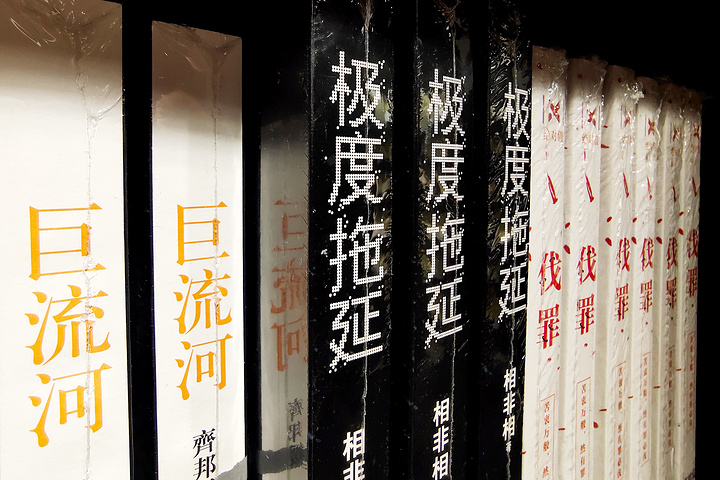 巨流河
巨流河
齊邦
巨流河
齊邦
极度拖延
相非
极度拖延
相非相
极度拖延
相非相
伐罪
伐罪
伐罪
伐罪
伐罪
伐罪